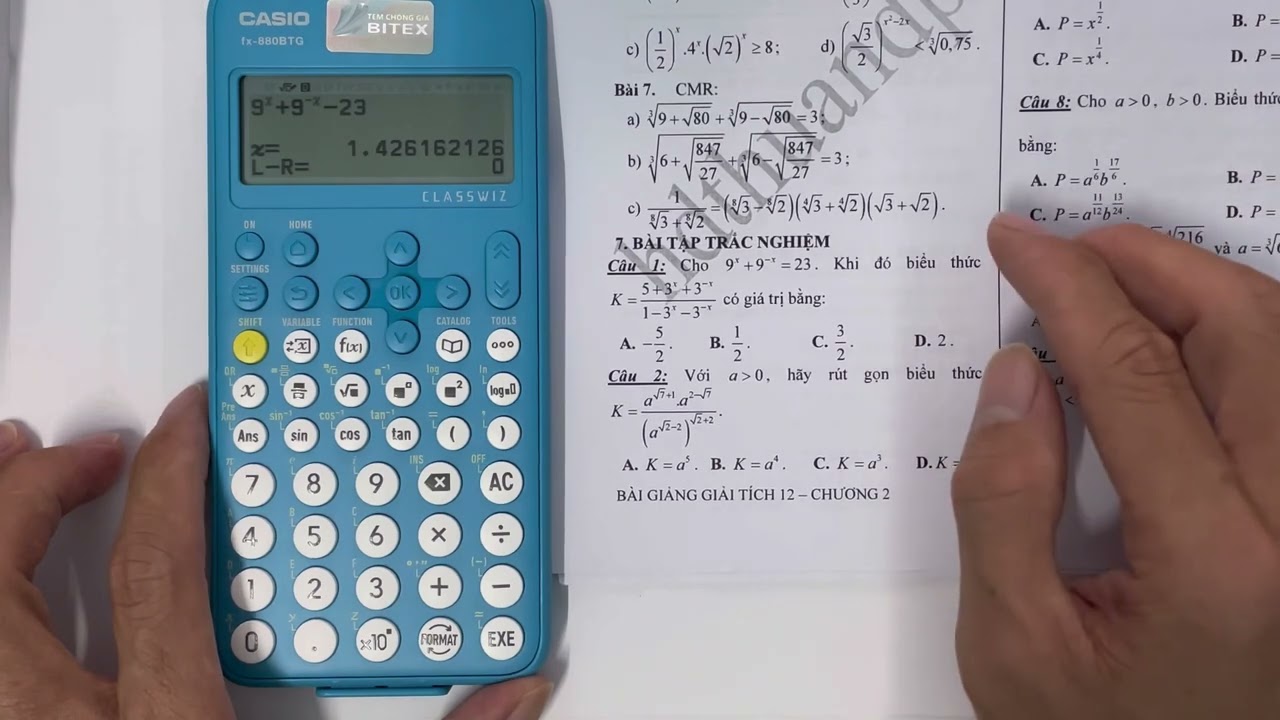 CASIO
fx-880BTG
TEM CHỐNG GIẢ
BITEX
9^x+9^-x-23
x= 1.426162126
L-R= 0
CLASSWIZ
ON HOME
SETTINGS
OK
SHIFT VARIABLE FUNCTION CATALOG TOOLS
f(x)
x log
Ans sin cos tan ( )
sin⁻¹ cos⁻¹ tan⁻¹
INS OFF
7 8 9 AC
4 5 6 × ÷
1 2 3 + −
0 . ×10 FORMAT EXE
c) (1/2)^x .4^x.(√2)^x ≥ 8; d) (√3/2)^(x²−2x) < ∛0,75 .
Bài 7. CMR:
a) ∛(9+√80) + ∛(9−√80) = 3;
b) ∛(6+√(847/27)) + ∛(6−√(847/27)) = 3;
c) 1/(⁸√3+⁸√2) = (⁸√3−⁸√2)(⁴√3+⁴√2)(√3+√2).
7. BÀI TẬP TRẮC NGHIỆM
Câu 1: Cho 9^x + 9^−x = 23. Khi đó biểu thức
K = (5+3^x+3^−x)/(1−3^x−3^−x) có giá trị bằng:
A. −5/2. B. 1/2. C. 3/2. D. 2.
Câu 2: Với a > 0, hãy rút gọn biểu thức
K = (a^(√7+1).a^(2−√7))/(a^(√2−2))^(√2+2).
A. K = a⁵. B. K = a⁴. C. K = a³. D. K =
BÀI GIẢNG GIẢI TÍCH 12 – CHƯƠNG 2
hdthuandp
A. P = x^(1/2). B. P =
C. P = x^(1/4). D. P =
Câu 8: Cho a > 0, b > 0. Biểu thức
bằng:
A. P = a^(1/6)b^(17/6). B. P =
C. P = a^(11/12)b^(13/24). D. P =
216 và a = ∛